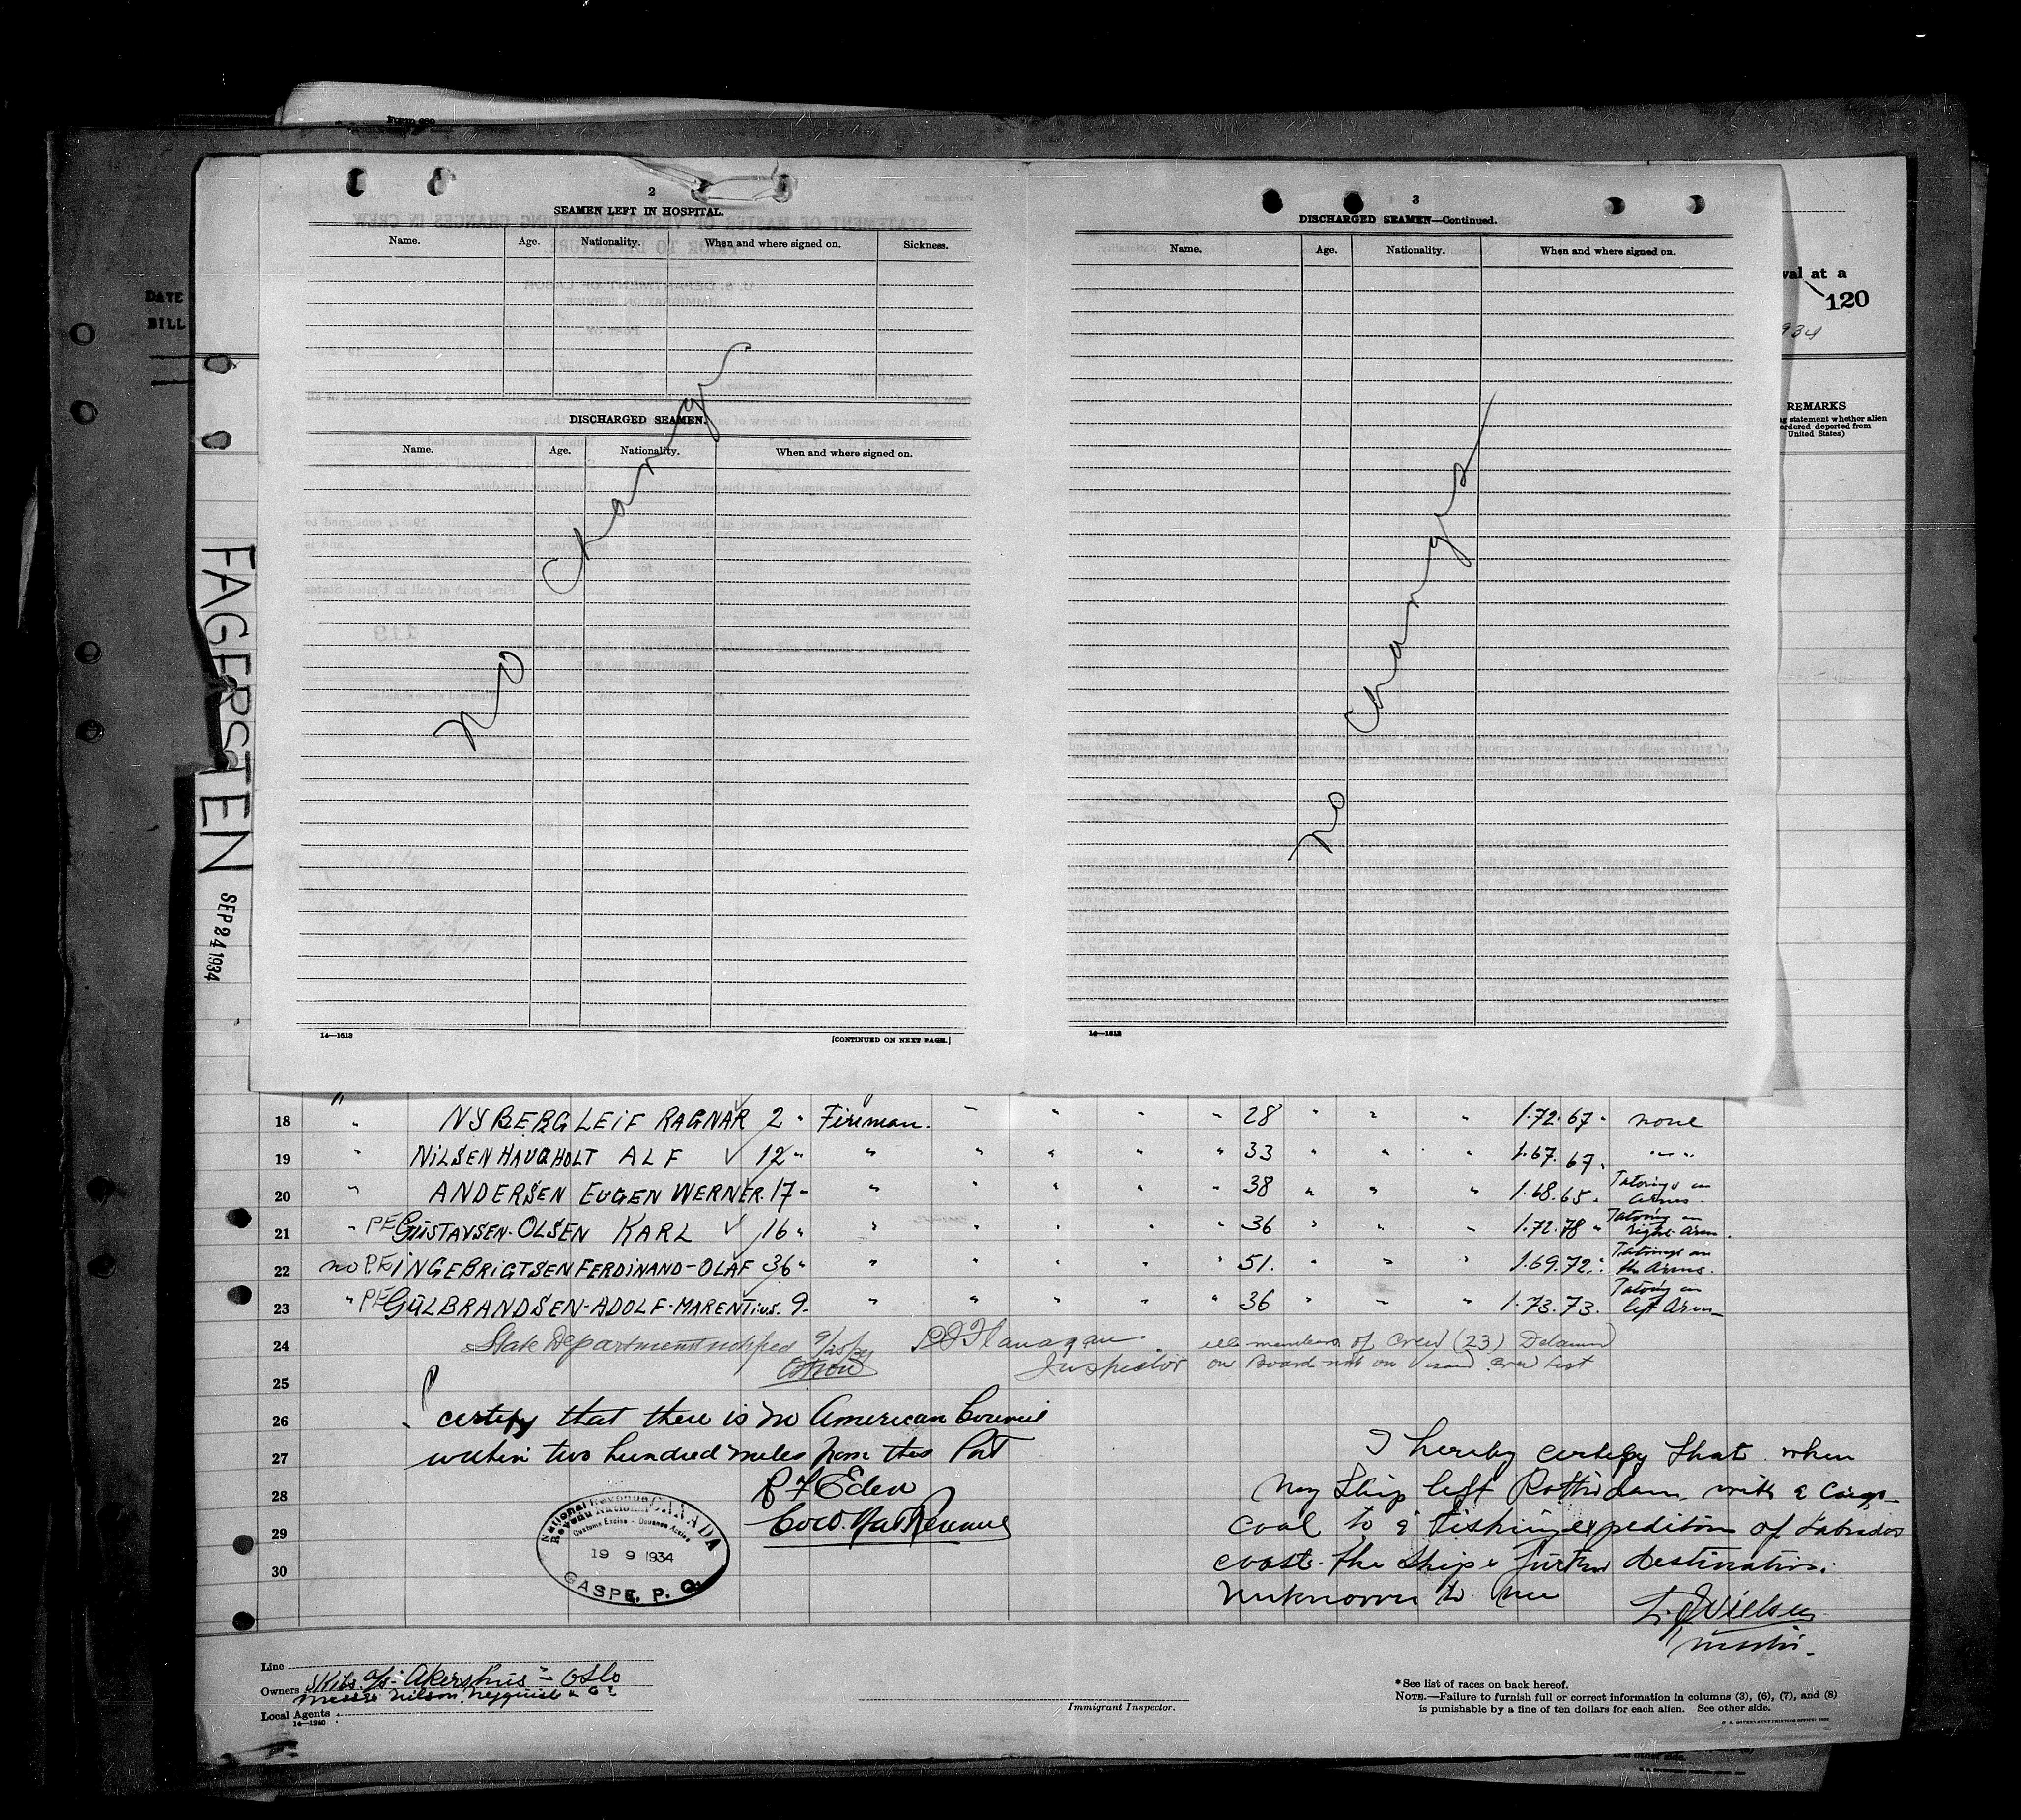 2
SEAMEN LEFT IN HOSPITAL.
Name. Age. Nationality. When and where signed on. Sickness.
DISCHARGED SEAMEN.
Name. Age. Nationality. When and where signed on.
No Changes
14—1613
[CONTINUED ON NEXT PAGE.]
3
DISCHARGED SEAMEN—Continued.
Name. Age. Nationality. When and where signed on.
No Changes
14—1613
DATE
BILL
val at a
120
934
REMARKS
statement whether alien
ordered deported from
United States)
FAGERSTEN
SEP 24 1934
18 " NYBERG LEIF RAGNAR 2 " Fireman. " " " " 28 " " " 1.72. 67 " none
19 " NILSEN HAUGHOLT ALF 12 " " " " " " 33 " " " 1.67. 67. " "
20 " ANDERSEN EUGEN WERNER. 17 " " " " " " 38 " " " 1.68. 65. Tatoings on Arms.
21 " PE GUSTAVSEN-OLSEN KARL 16 " " " " " 36 " " " 1.72. 78 " Tatoing on right Arm.
22 no PE INGEBRIGTSEN FERDINAND-OLAF 36 " " " " " 51. " " " 1.69. 72. " Tatoings on the Arms.
23 " PE GULBRANDSEN-ADOLF-MARENTIUS. 9 " " " " " " 36 " " " 1.73. 73. Tatoing on left Arm
24 State Department notified Flanagan members of crew (23) Detained
25 Inspector on Board not on visaed crew list
26 I certify that there is no American Council
27 within two hundred miles from this Port
28 R F Eden
29 Nat Revenue
30
National Revenue CANADA
Revenu National
Customs Excise - Douanes Accise
19 9 1934
GASPE, P. Q.
I hereby certify that when
my ship left Rotterdam with a cargo
coal to a fishing expedition of Labrador
coast. the ships further destination.
unknown to me
L. Nielsen
Master.
Line
Owners Skibs a/s Akershus - Oslo
Messrs Nilson, Nyquist & Co
Local Agents
14—1240
Immigrant Inspector.
*See list of races on back hereof.
NOTE.—Failure to furnish full or correct information in columns (3), (6), (7), and (8)
is punishable by a fine of ten dollars for each alien. See other side.